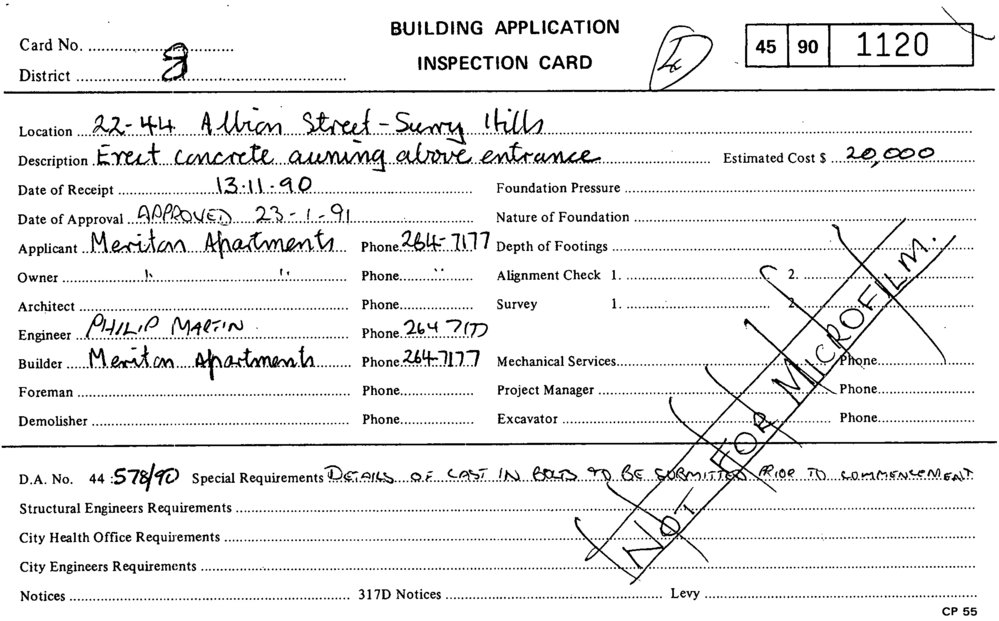 BUILDING APPLICATION
INSPECTION CARD
Card No.
District 3
45 90 1120
Location 22-44 Albion Street - Surry Hills
Description Erect concrete awning above entrance Estimated Cost $ 20,000
Date of Receipt 13.11.90 Foundation Pressure
Date of Approval APPROVED 23-1-91 Nature of Foundation
Applicant Meriton Apartments Phone 264-7177 Depth of Footings
Owner " " Phone " Alignment Check 1. 2.
Architect Phone Survey 1. 2.
Engineer PHILIP MARTIN Phone 264 7177
Builder Meriton Apartments Phone 264-7177 Mechanical Services Phone
Foreman Phone Project Manager Phone
Demolisher Phone Excavator Phone
NOT FOR MICROFILM.
D.A. No. 44:578/90 Special Requirements DETAILS OF CAST IN BOLTS TO BE SUBMITTED PRIOR TO COMMENCEMENT
Structural Engineers Requirements
City Health Office Requirements
City Engineers Requirements
Notices 317D Notices Levy
CP 55